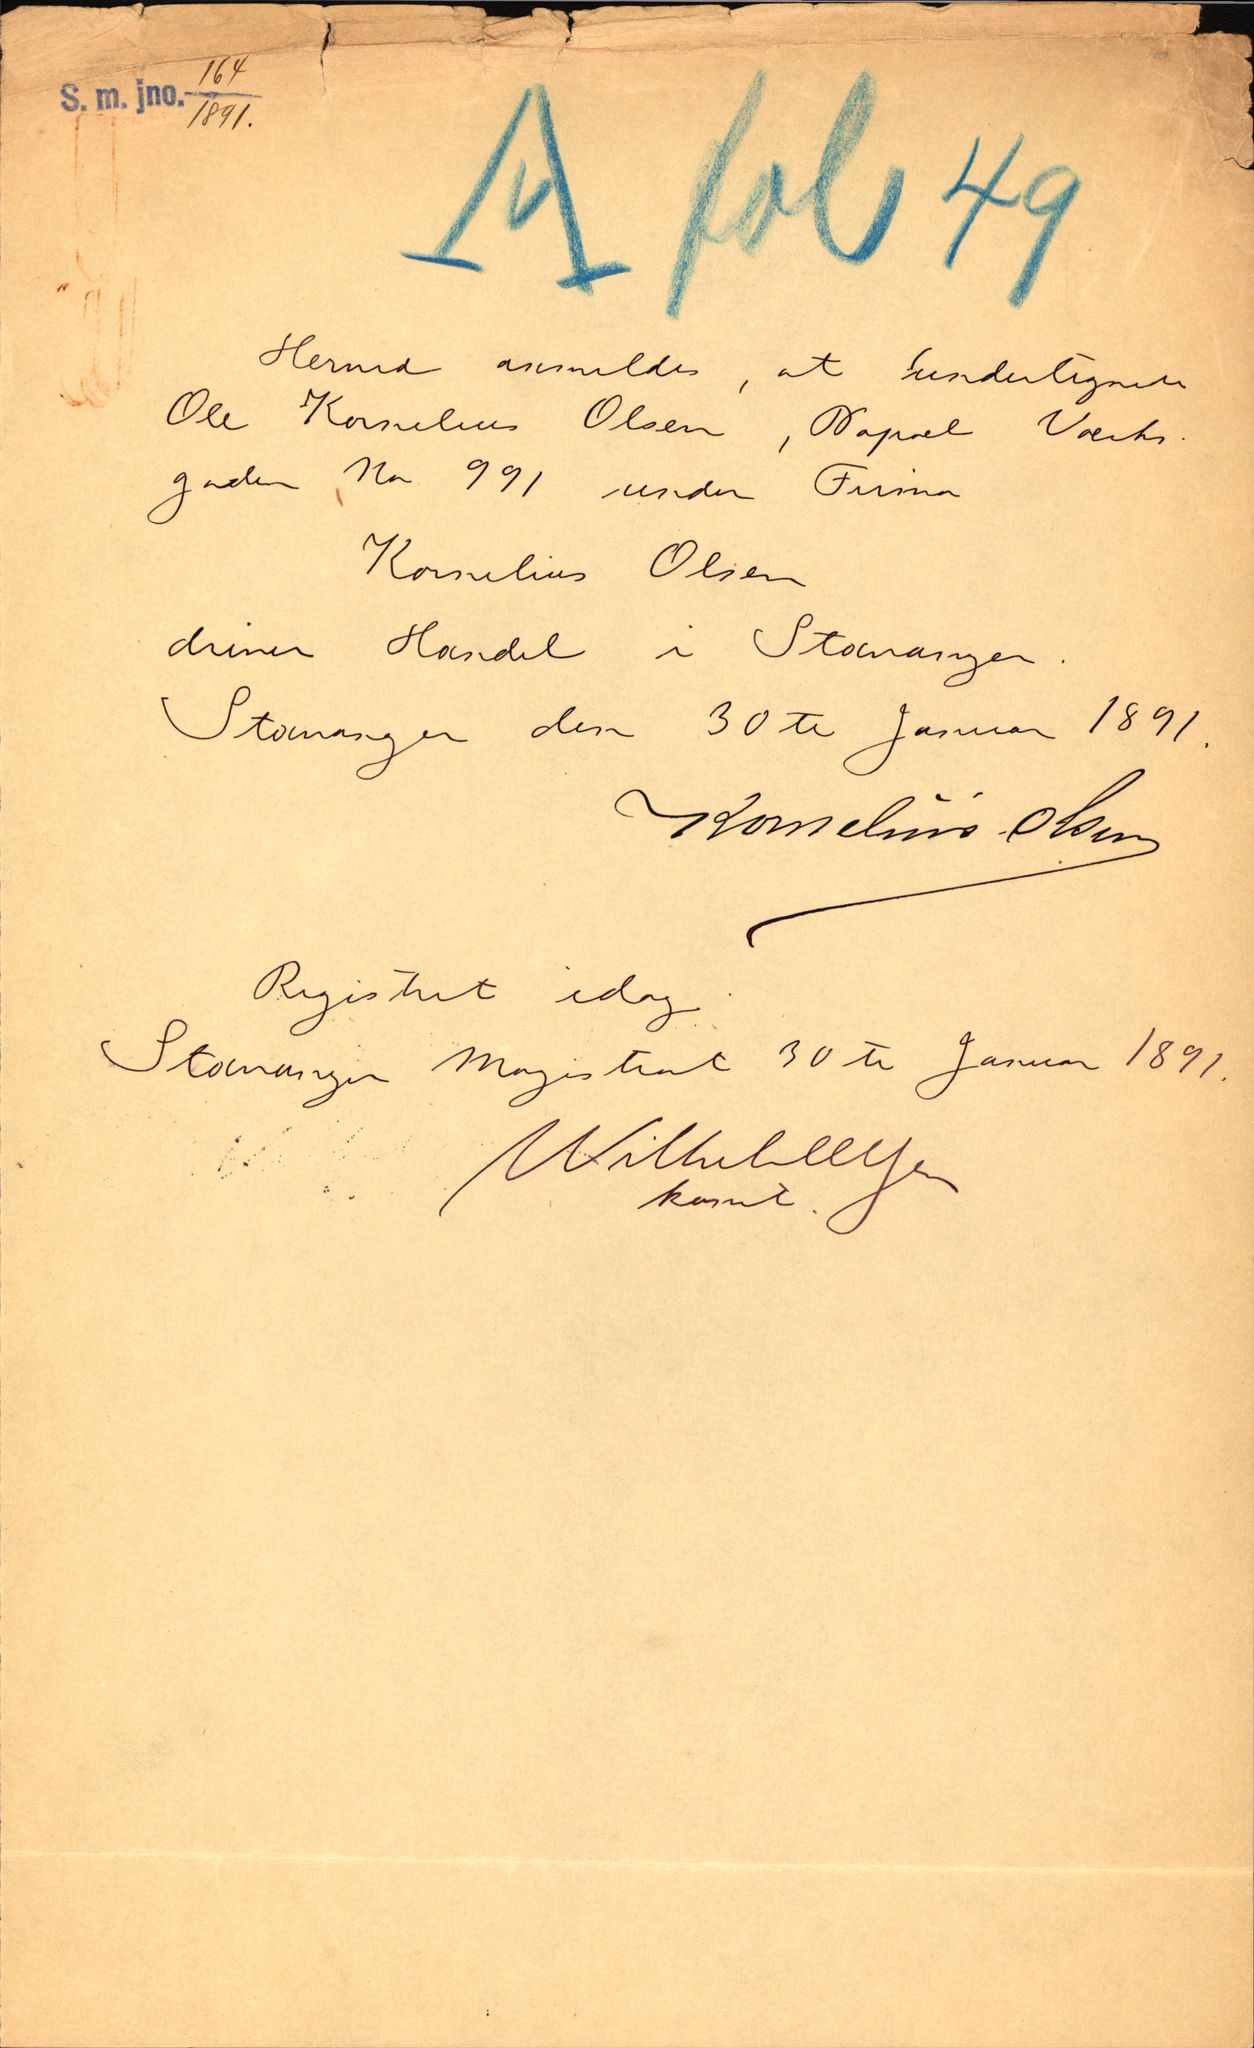 S. m. jno. 164/1891.
A fol 49
Hermed anmeldes, at undertegnede
Ole Kornelius Olsen, Værks-
gaden No 991 under Firma
Kornelius Olsen
driver Handel i Stavanger.
Stavanger den 30te Januar 1891.
Kornelius Olsen
Registret idag.
Stavanger Magistrat 30te Januar 1891.
const.